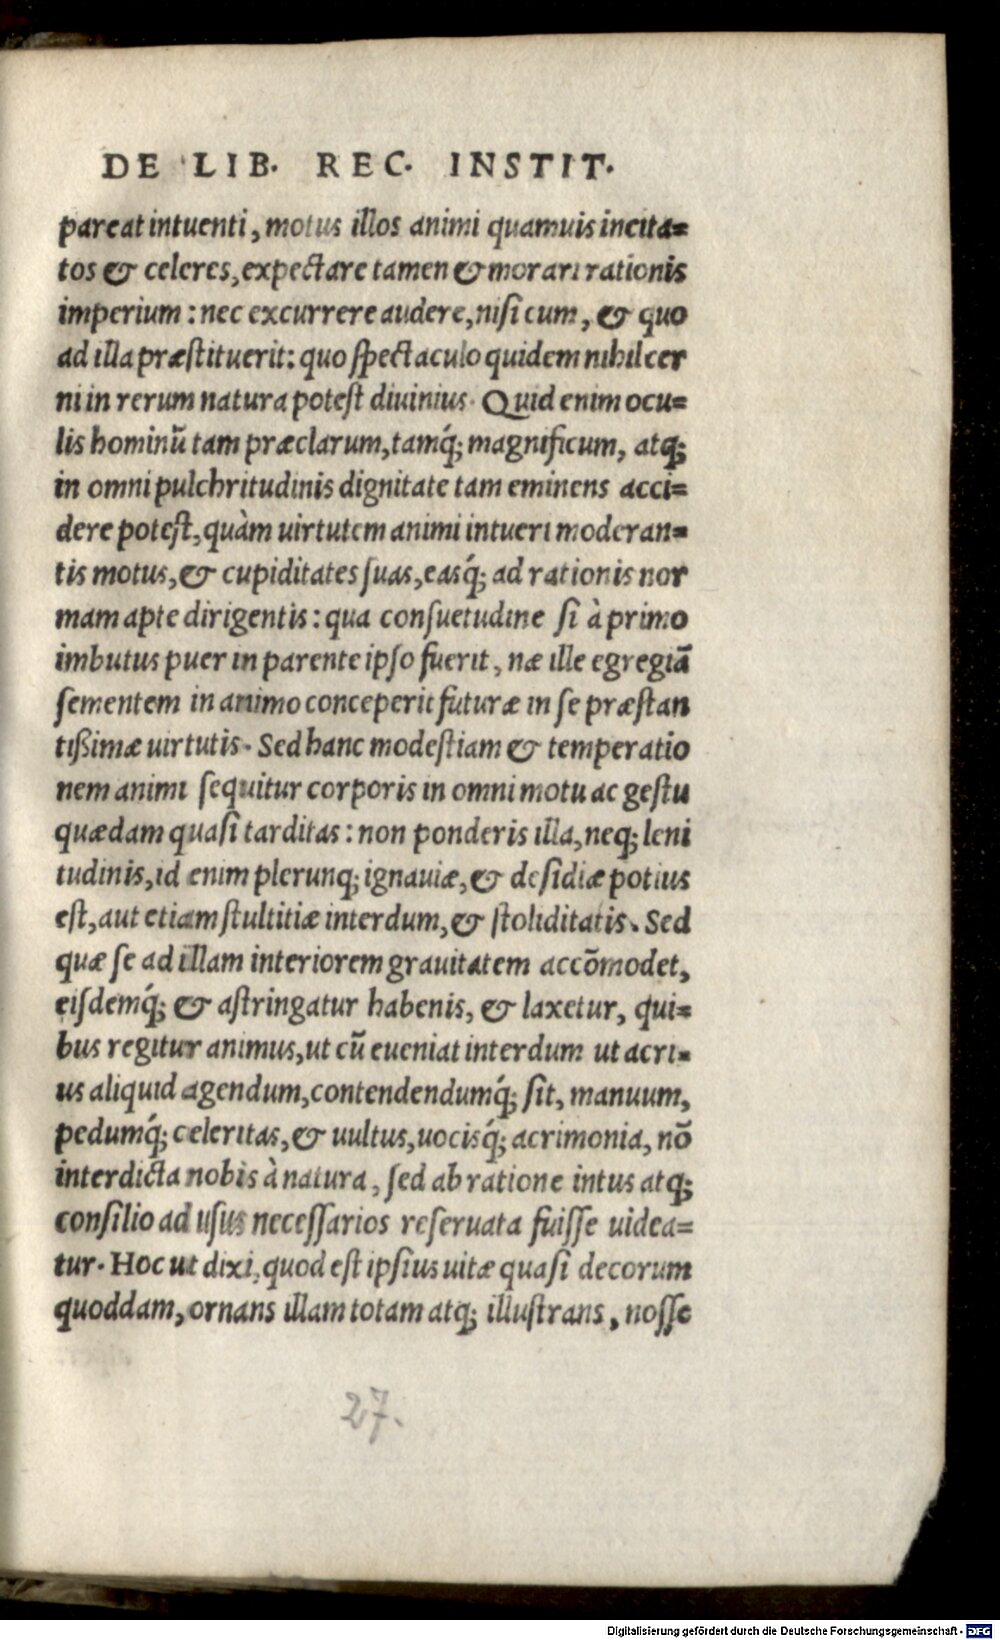 DE LIB. REC. INSTIT.
pareat intuenti, motus illos animi quamuis incita=
tos & celeres, expectare tamen & morari rationis
imperium: nec excurrere audere, nisi cum, & quo
ad illa præstituerit: quo spectaculo quidem nihil cer
ni in rerum natura potest diuinius. Quid enim ocu=
lis hominũ tam præclarum, tamq́; magnificum, atq;
in omni pulchritudinis dignitate tam eminens acci=
dere potest, quàm uirtutem animi intueri moderan=
tis motus, & cupiditates suas, easq́; ad rationis nor
mam apte dirigentis: qua consuetudine si à primo
imbutus puer in parente ipso fuerit, næ ille egregiã
sementem in animo conceperit futuræ in se præstan
tißimæ uirtutis. Sed hanc modestiam & temperatio
nem animi sequitur corporis in omni motu ac gestu
quædam quasi tarditas: non ponderis illa, neq; leni
tudinis, id enim plerunq; ignauiæ, & desidiæ potius
est, aut etiam stultitiæ interdum, & stoliditatis. Sed
quæ se ad illam interiorem grauitatem accõmodet,
eisdemq́; & astringatur habenis, & laxetur, qui=
bus regitur animus, ut cũ eueniat interdum ut acri=
us aliquid agendum, contendendumq́; sit, manuum,
pedumq́; celeritas, & uultus, uocisq́; acrimonia, nõ
interdicta nobis à natura, sed ab ratione intus atq;
consilio ad usus necessarios reseruata fuisse uidea=
tur. Hoc ut dixi, quod est ipsius uitæ quasi decorum
quoddam, ornans illam totam atq; illustrans, nosse
27.
Digitalisierung gefördert durch die Deutsche Forschungsgemeinschaft - DFG